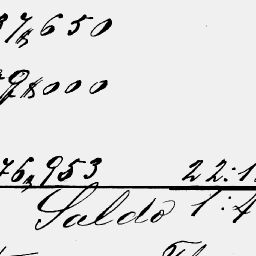 37$650
79$000
76$953 22:1
Saldo 1:4